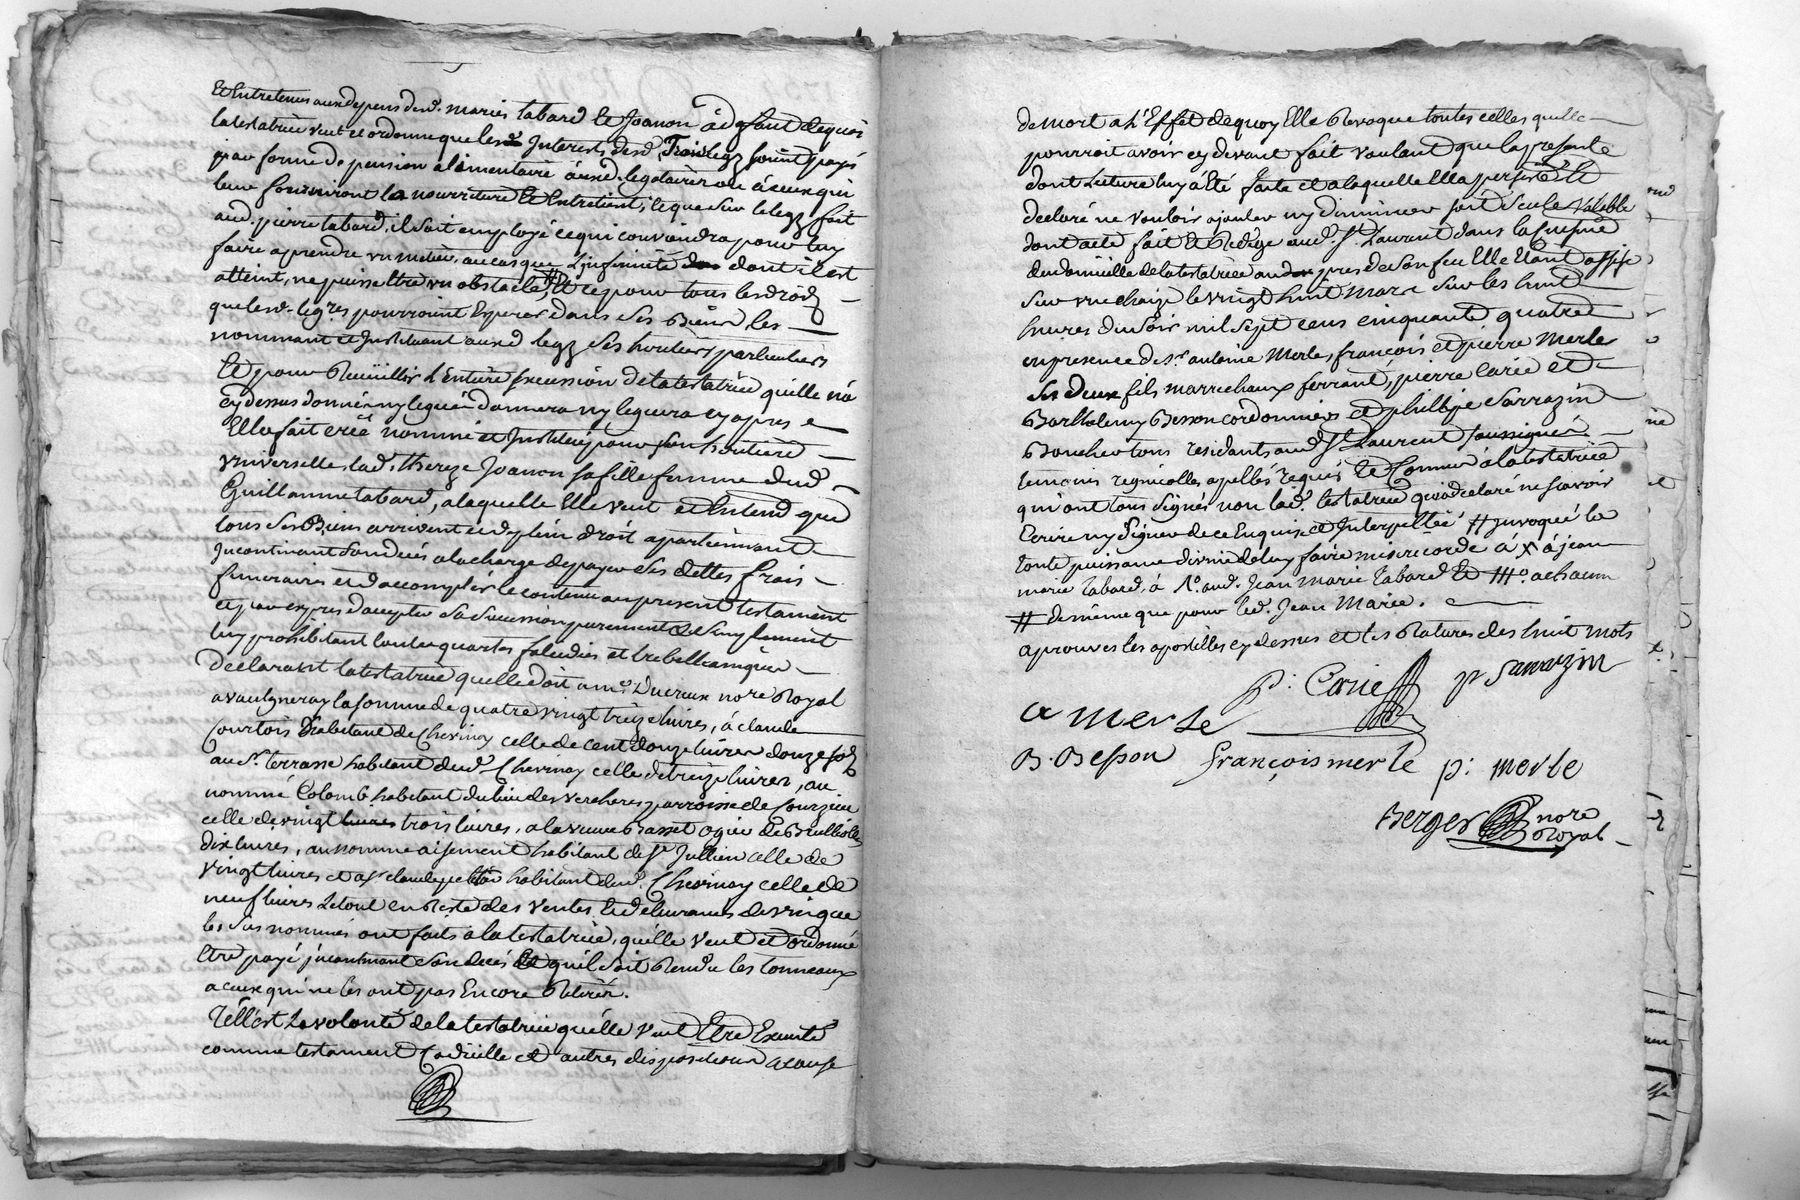 Et Entretenus aux depens desd. mariés tabard Et Joanon à deffaut dequoi
la testatrice veut et ordonne que lesd Interests desd. Trois legz soient payés
par forme de pension alimentaire ausd. legataires ou à ceux qui
leur fourniront la nourriture Et Entretient, et que sur le legz fait
aud. pierre tabard, il soit employé ce qui conviendra pour luy
faire aprendre un metier, au cas que L'infirmité dont il est
atteint, ne puisse Etre un obstacle # Et ce pour tous les droits
que lesd. legres pourroient Esperer dans ses Biens les
nommant et Instituant auxd legz ses heritiers particuliers
Et pour Recüeillir L'entiere sucession de la testatrice quelle n'a
cy dessus donnée ny leguée donnera ny leguera cy apres
Elle a fait créé nommé et Institué pour son heritiere
universelle, lad. thereze Joanon sa fille femme dud.
Guillaume tabard, a laquelle Elle veut et Entend que
tous ses Biens arrivent et de plein droit apartiennent
incontinant son decés a la charge de payer ses dettes frais
funeraires et d'accomplir le contenu au present testament
et par expres d'accepter sa sucession purement et simplement
luy prohibitant toutes quartes falcidies et trebellianiques
Declarant la testatrice quelle doit a me. Ducreux nore Royal
a vaugneray la somme de quatre vingt treize livres, à claude
Courtois habitant de Chevinay celle de cent douze livres douze sols
au Sr. terrasse habitant dud. Chevinay celle de treize livres, au
nommé Colomb habitant du lieu des vercheres parroisse de sourzieu
celle de vingt trois livres, a la veuve Basset ogier de Brullioles
dix livres, au nommé aisement habitant de St. Jullien celle de
vingt livres et a Sr claude petitin habitant dud. Chevinay celle de
neuf livres Letout en Reste des ventes Et delivrances de vin que
les sus nommés ont faits a la testatrice, qu'elle veut et ordonne
Etre payé incontinant son decés Et qu'il soit Rendu les tonneaux
a ceux qui ne les ont pas Encore Retirés.
Tell'est La volonté de la testatrice qu'elle veut Etre Executé
comme testament Codicille et autres dispositions a cause
de mort a L'Effet dequoy Elle Revoque toutes celles quelle
pourroit avoir cy devant fait voulant que la presente
dont Lecture luy à Eté faite et a laquelle Ella persisté Et
declaré ne vouloir ajouter ny diminuer soit seule Valable
dont acte fait Et Redigé aud. St. Laurent dans la cuisine
du domicille de la testatrice pres de son feu Elle Etant assise
sur une chaize le vingt huit Mars sur les huit
heures du soir mil sept cens cinquante quatre
en presence de Sr. antoine Merle, françois et pierre Merle
ses deux fils marrechaux ferrant, pierre Carie et
Barthelemy Besson cordonniers et philippe Sarrazin
Boucher tous residants aud St. Laurent soussignés
temoins regnicolles apellés requis Et Connus à la testatrice
qui ont tous signés non lad. testatrice qui a declaré ne scavoir
Ecrire ny signer de ce Enquise et Interpellée # invoqué la
toute puissance divine de luy faire misericorde à X à jean
marie tabard, à 1o. aud. Jean marie tabard Et #o. a chacun
# de même que pour led. Jean Marie.
aprouvés les apostilles cy dessus et les Ratures des huit mots
p: Carie
pr Sarrazin
a merle
B. Besson
françois merle
p: merle
Berger nore
Royal